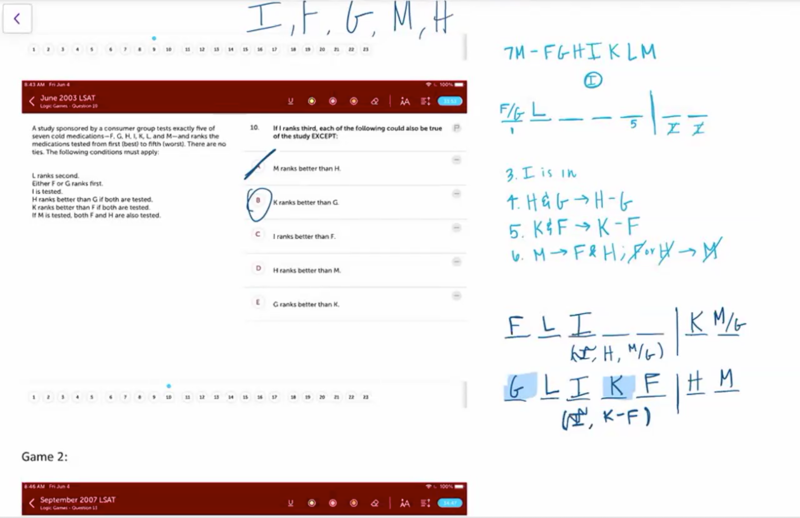 I, F, G, M, H
1 2 3 4 5 6 7 8 9 10 11 12 13 14 15 16 17 18 19 20 21 22 23
6:43 AM Fri Jun 4
100%
June 2003 LSAT
Logic Games - Question 10
U
AA
A study sponsored by a consumer group tests exactly five of
seven cold medications—F, G, H, I, K, L, and M—and ranks the
medications tested from first (best) to fifth (worst). There are no
ties. The following conditions must apply:
L ranks second.
Either F or G ranks first.
I is tested.
H ranks better than G if both are tested.
K ranks better than F if both are tested.
If M is tested, both F and H are also tested.
10. If I ranks third, each of the following could also be true
of the study EXCEPT:
M ranks better than H.
B K ranks better than G.
C I ranks better than F.
D H ranks better than M.
E G ranks better than K.
1 2 3 4 5 6 7 8 9 10 11 12 13 14 15 16 17 18 19 20 21 22 23
Game 2:
6:46 AM Fri Jun 4
100%
September 2007 LSAT
Logic Games - Question 12
U
AA
7M - F G H I K L M
I
F/G L
1 5
3. I is in
4. H & G → H - G
5. K & F → K - F
6. M → F & H; F or H → M
F L I | K M/G
(I, H, M/G)
G L I K F | H M
(I, K-F)